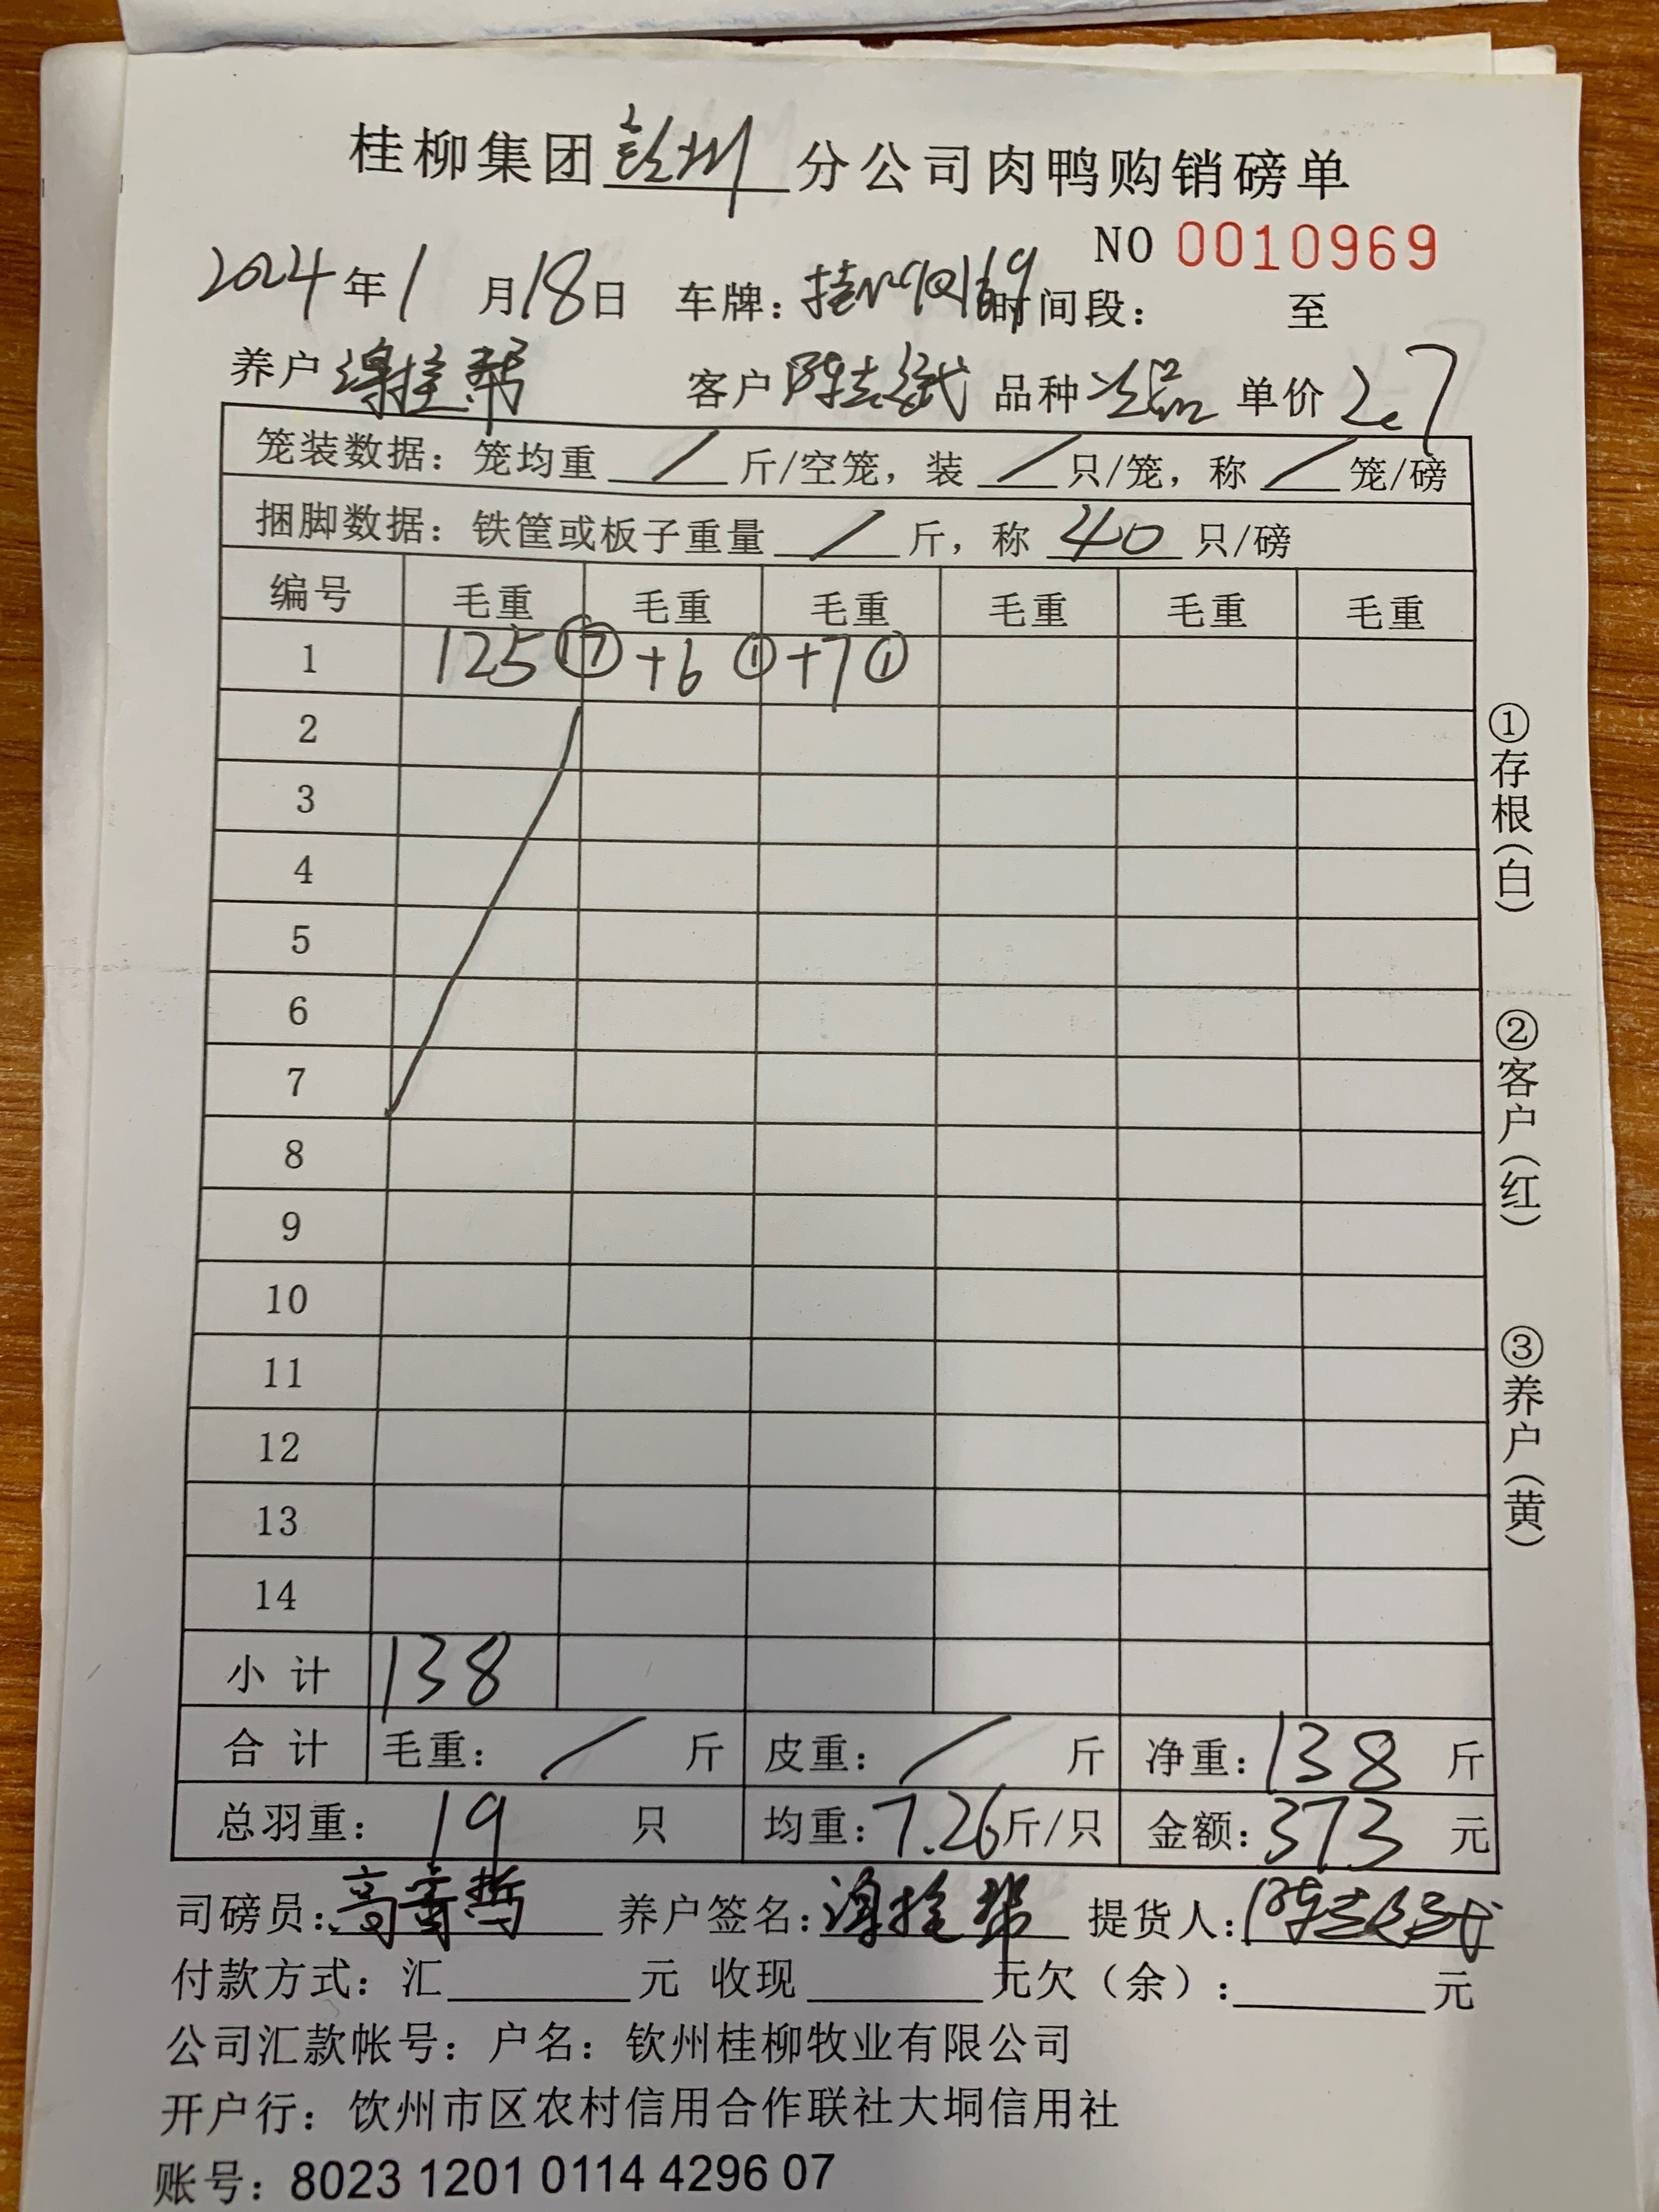 桂柳集团钦州分公司肉鸭购销磅单
NO 0010969
2024年1月18日 车牌: 时间段: 至
养户 客户 陈 品种 次品 单价 2.7
笼装数据: 笼均重 / 斤/空笼, 装 / 只/笼, 称 / 笼/磅
捆脚数据: 铁筐或板子重量 / 斤, 称 40 只/磅
编号 毛重 毛重 毛重 毛重 毛重 毛重
1 125⑰ +6① +7①
2
3
4
5
6
7
8
9
10
11
12
13
14
小计 138
合计 毛重: / 斤 皮重: / 斤 净重: 138 斤
总羽重: 19 只 均重: 7.26 斤/只 金额: 373 元
司磅员: 高 养户签名: 提货人: 陈
付款方式: 汇 元 收现 元欠(余): 元
公司汇款帐号: 户名: 钦州桂柳牧业有限公司
开户行: 饮州市区农村信用合作联社大垌信用社
账号: 8023 1201 0114 4296 07
①存根(白)
②客户(红)
③养户(黄)